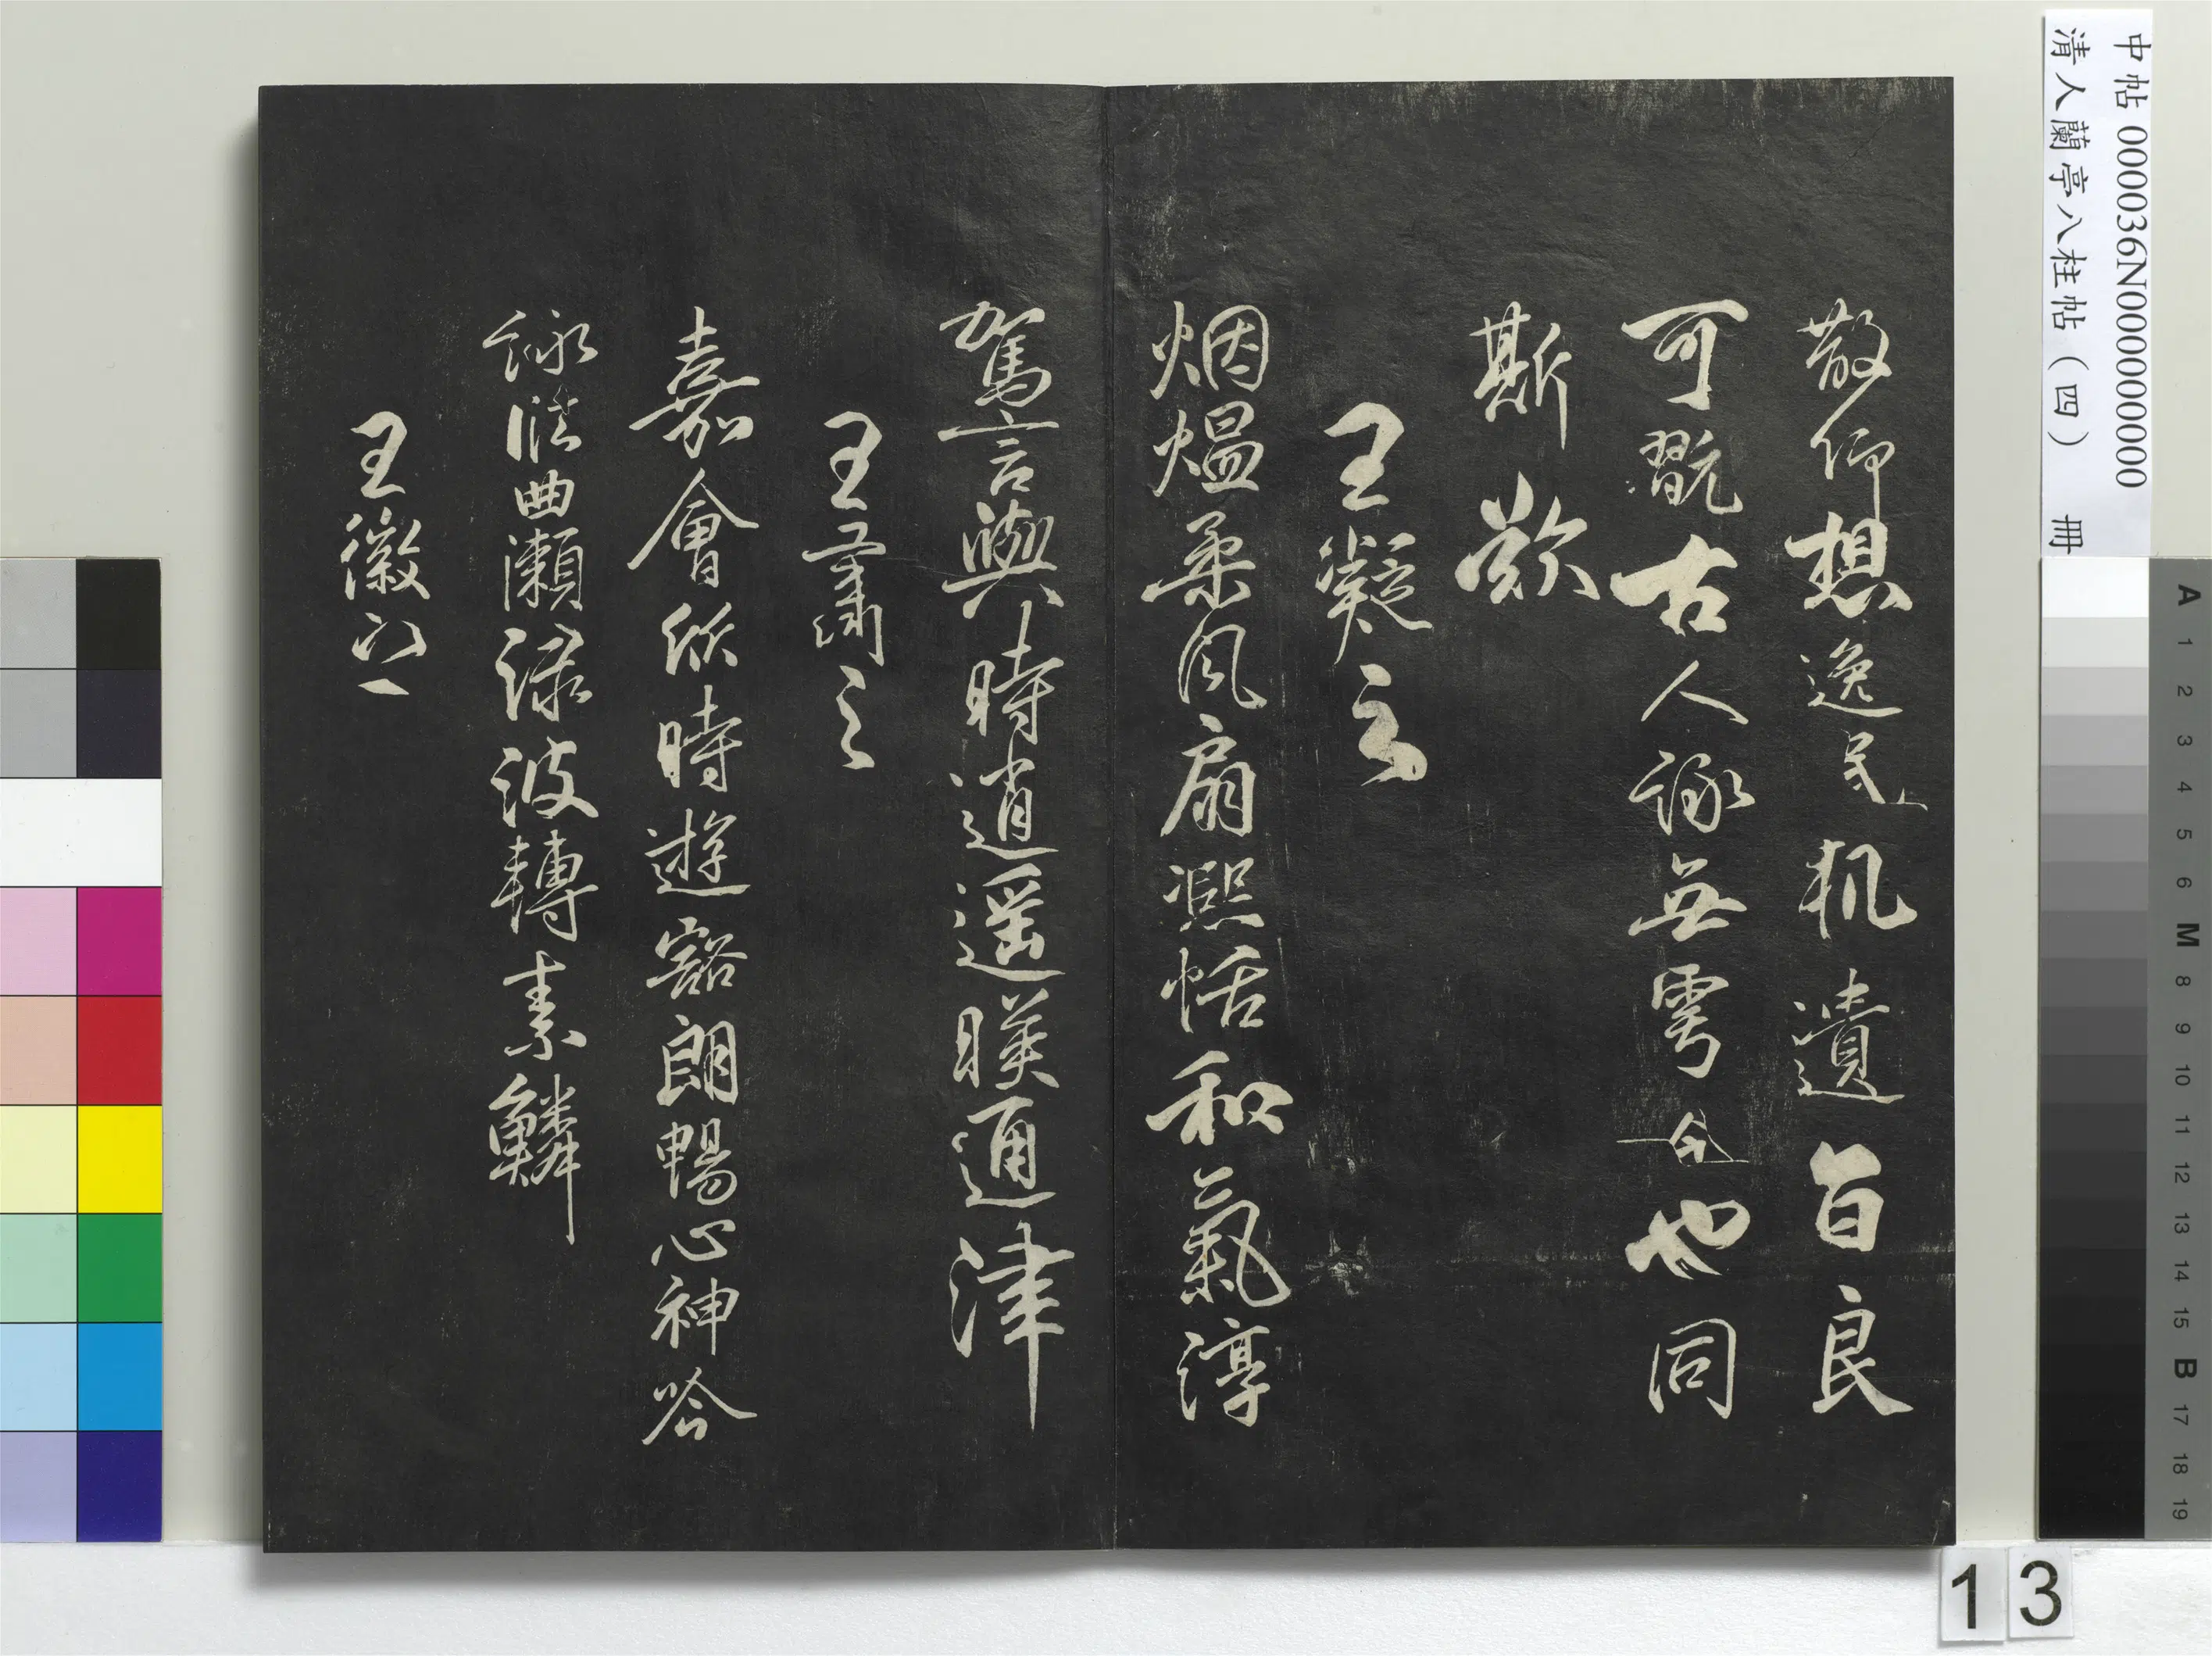 中帖 000036N000000000
清人蘭亭八柱帖（四） 冊
散仰想逸民軌遺旨良
可翫古人詠無雩今也同
斯歎
王凝之
烟熅柔風扇熈恬和氣淳
駕言興時逍遥暎通津
王肅之
嘉會欣時遊豁朗暢心神吟
詠曲瀨渌波轉素鱗
王徽之
A 1 2 3 4 5 6 M 8 9 10 11 12 13 14 15 B 17 18 19
13